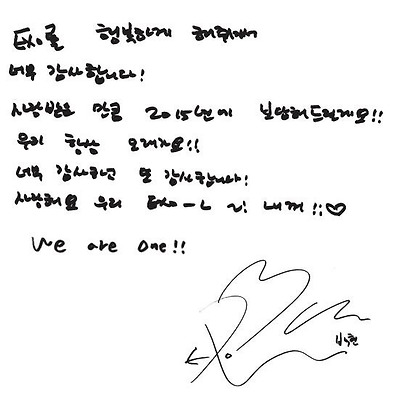 EXO를 행복하게 해줘서
너무 감사합니다!
사랑받은 만큼 2015년에 보답해드릴게요!!
우리 항상 오래가요!!
너무 감사하고 또 감사합니다!
사랑해요 우리 EXO-L 는 내꺼!!♡
We are one!!
백현